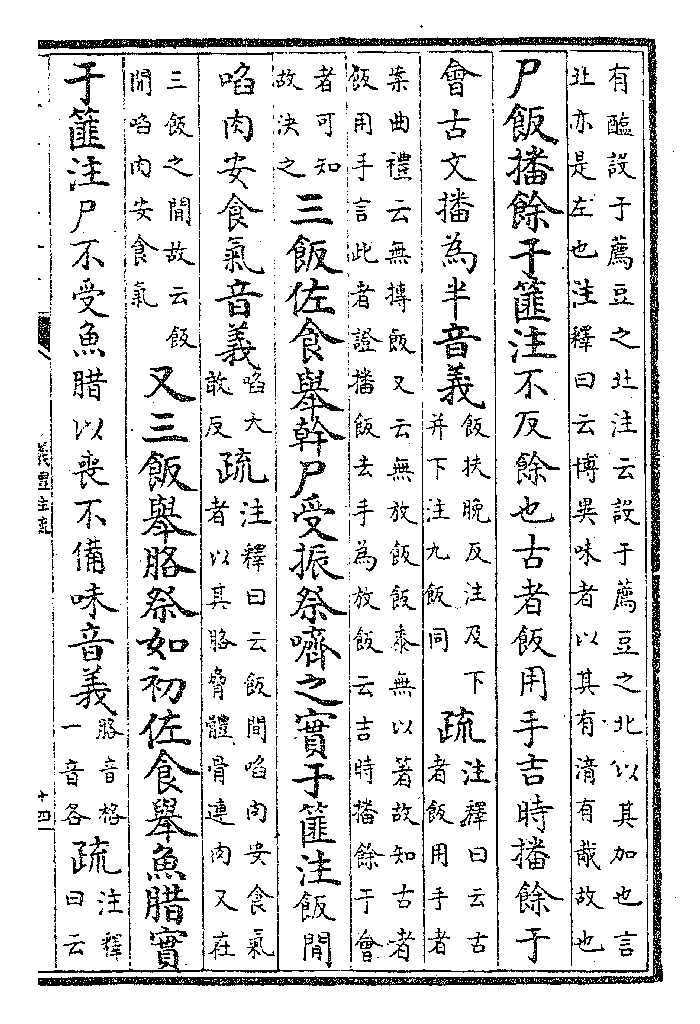 有醢設于薦豆之北注云設于薦豆之北以其加也言
北亦是左也注釋曰云博異味者以其有湆有胾故也
尸飯播餘于篚注不反餘也古者飯用手吉時播餘于
會古文播為半音義飯扶晚反注及下
并下注九飯同
疏注釋曰云古
者飯用手者
案曲禮云無摶飯又云無放飯飯黍無以箸故知古者
飯用手言此者證播飯去手為放飯云吉時播餘于會
者可知
故決之
三飯佐食舉幹尸受振祭嚌之實于篚注飯間
啗肉安食氣音義啗大
敢反
疏注釋曰云飯間啗肉安食氣
者以其胳脅體骨連肉又在
三飯之間故云飯
間啗肉安食氣
又三飯舉胳祭如初佐食舉魚腊實
于篚注尸不受魚腊以喪不備味音義胳音格
一音各
疏注釋
曰云
儀禮注疏
十四